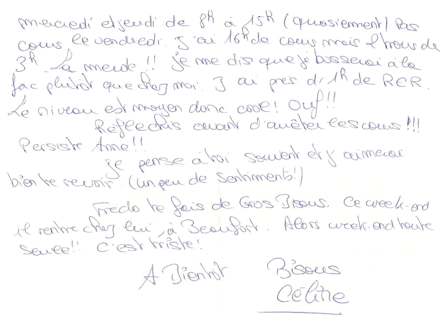 mercredi et jeudi de 8h à 15h (quasiement) Pas
cours, le vendredi J'ai 16h de cours mais 1 trous de
3h. La merde !! je me dis que je bosserai à la
fac plutôt que chez moi. J'ai pres de 1h de RER.
Le niveau est moyen donc cool! Ouf!!
Réflechis avant d'arrêter les cours!!!
Persiste !!
je pense à toi souvent et j'aimerai
bien te revoir (un peu de sentiments!)
Fredo te fais de Gros Bisous. Ce week-end
il rentre chez lui, à Beaufort. Alors week-end toute
seule!! C'est triste!
A Bientot Bisous
Céline